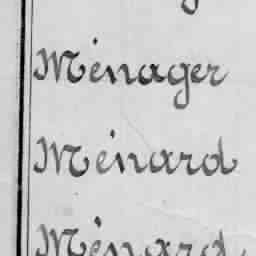 Ménager
Ménard
Ménard